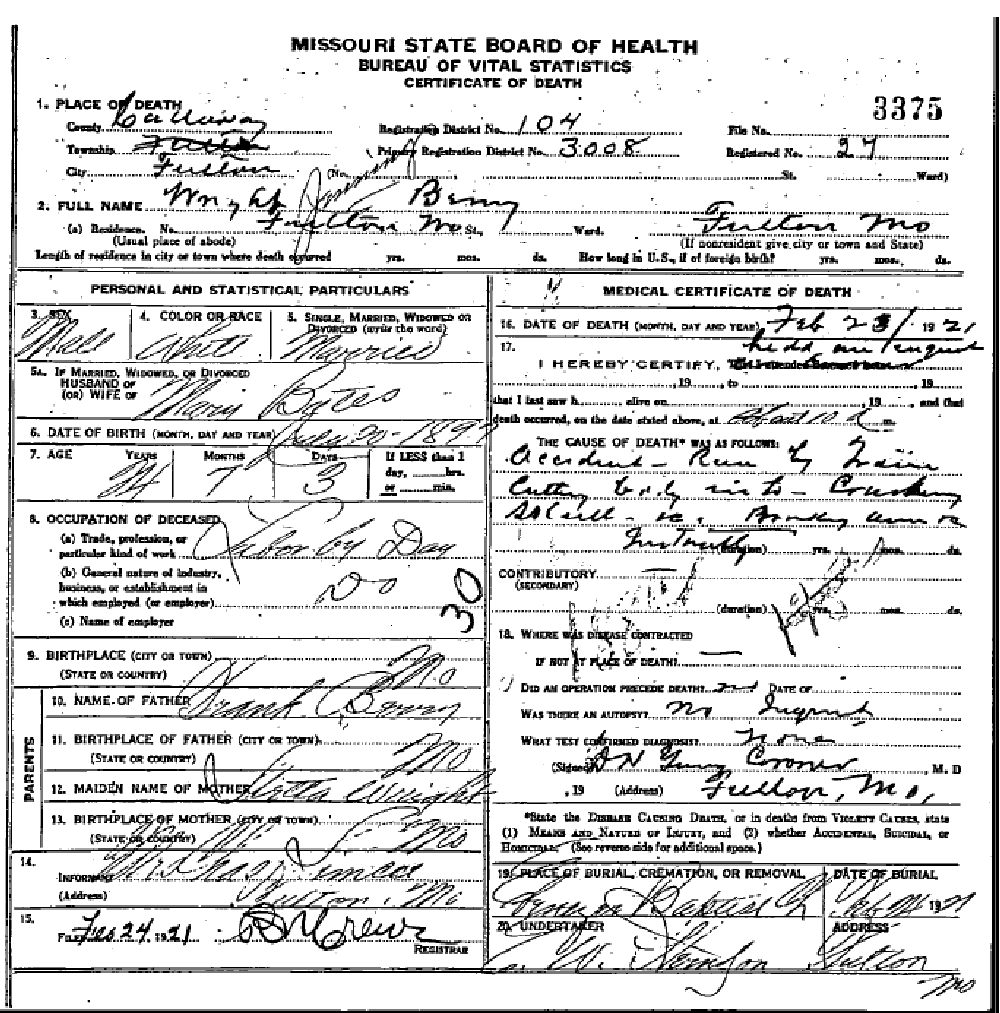 MISSOURI STATE BOARD OF HEALTH
BUREAU OF VITAL STATISTICS
CERTIFICATE OF DEATH
3375
1. PLACE OF DEATH
County Callaway Registration District No. 104 File No.
Township Fulton Primary Registration District No. 3008 Registered No. 27
City Fulton (No. St. Ward)
2. FULL NAME Wright Jennings Berry
(a) Residence. No. Fulton Mo St., Ward. Fulton Mo
(Usual place of abode) (If nonresident give city or town and State)
Length of residence in city or town where death occurred yrs. mos. ds. How long in U.S., if of foreign birth? yrs. mos. ds.
PERSONAL AND STATISTICAL PARTICULARS
3. SEX 4. COLOR OR RACE 5. SINGLE, MARRIED, WIDOWED OR DIVORCED (write the word)
Male White Married
5A. IF MARRIED, WIDOWED, OR DIVORCED
HUSBAND OF
(OR) WIFE OF
6. DATE OF BIRTH (MONTH, DAY AND YEAR)
7. AGE YEARS MONTHS DAYS If LESS than 1 day, hrs. or min.
7 3
8. OCCUPATION OF DECEASED
(a) Trade, profession, or
particular kind of work Labor by Day
(b) General nature of industry,
business, or establishment in
which employed (or employer) Do
(c) Name of employer
30
9. BIRTHPLACE (CITY OR TOWN)
(STATE OR COUNTRY) Mo
PARENTS
10. NAME OF FATHER Frank Berry
11. BIRTHPLACE OF FATHER (CITY OR TOWN)
(STATE OR COUNTRY) Mo
12. MAIDEN NAME OF MOTHER Wright
13. BIRTHPLACE OF MOTHER (CITY OR TOWN)
(STATE OR COUNTRY) Mo
14.
INFORMANT
(Address) Fulton, Mo
15.
FILED Feb 24, 1921 Crews
REGISTRAR
MEDICAL CERTIFICATE OF DEATH
16. DATE OF DEATH (MONTH, DAY AND YEAR) Feb 23 1921
17. held an Inquest
I HEREBY CERTIFY, That I attended deceased from
, 19 , to , 19
that I last saw h alive on , 19 , and that
death occurred, on the date stated above, at about 10 m.
THE CAUSE OF DEATH* WAS AS FOLLOWS:
Accident - Run by Train
Cutting body into - Crushing
Skull
Instantly (duration) yrs. mos. ds.
CONTRIBUTORY
(SECONDARY)
(duration) yrs. mos. ds.
18. WHERE WAS DISEASE CONTRACTED
IF NOT AT PLACE OF DEATH?
DID AN OPERATION PRECEDE DEATH? no DATE OF
WAS THERE AN AUTOPSY? No Inquest
WHAT TEST CONFIRMED DIAGNOSIS? None
(Signed) Coroner M. D
, 19 (Address) Fulton, Mo,
*State the DISEASE CAUSING DEATH, or in deaths from VIOLENT CAUSES, state
(1) MEANS AND NATURE OF INJURY, and (2) whether ACCIDENTAL, SUICIDAL, or
HOMICIDAL. (See reverse side for additional space.)
19. PLACE OF BURIAL, CREMATION, OR REMOVAL DATE OF BURIAL
Baptist Ch Feb 1921
20. UNDERTAKER ADDRESS
W. Fulton
Mo